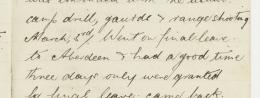 was
camp drill, guards & range shooting
March, 3rd. Went on final leave
to Aberdeen & had a good time
three days only were granted
by final leave. came back